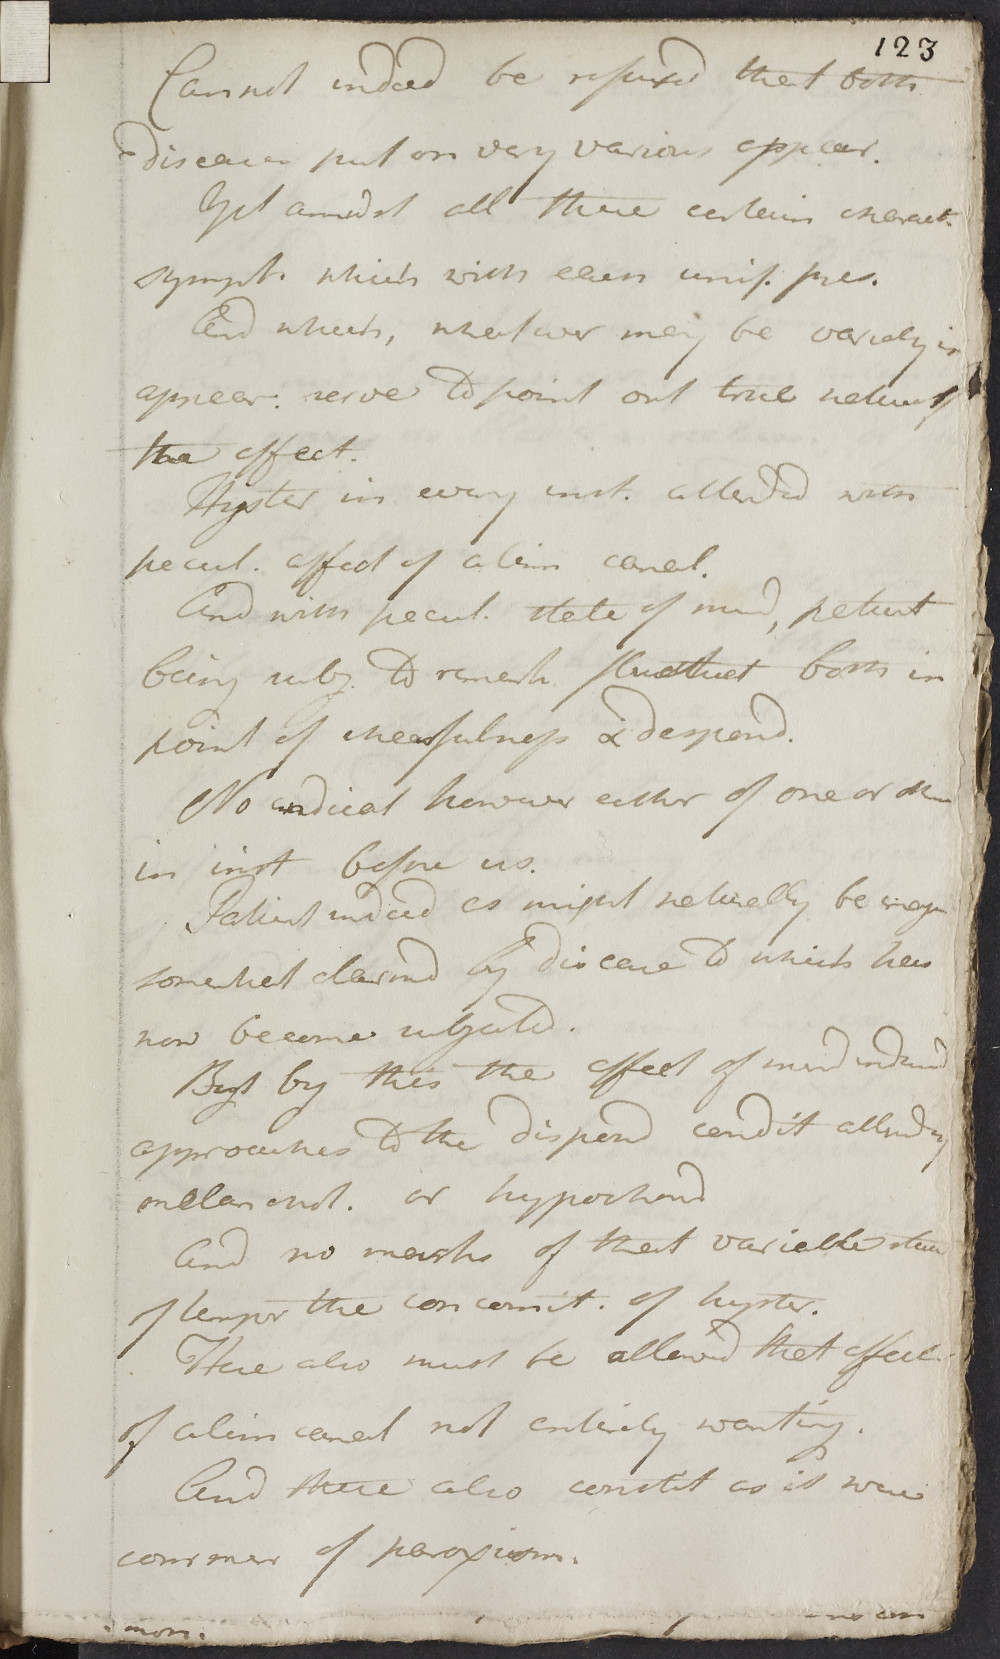 123
Cannot indeed be refused that both
diseases put on very various appear.
Yet amidst all there certain charact.
sympt. which with each unif. pres.
And which, whatever may be variety in
appear. serve to point out true nature of
the affect.
Hyster in every inst. attended with
pecul. affect of alim canal.
And with pecul. state of mind, patient
being subj. to remark fluctuat both in
point of chearfulness & despond.
No indicat however either of one or other
in inst before us.
Patient indeed as might naturally be imagin
somewhat alarmd by disease to which has
now become subjected.
But by this the affect of mind induced
approaches to the dispond condit attending
melanchol. or hypochond
And no marks of that variable state
of temper the concomit. of hyster.
Here also must be allowed that affect
of alim canal not entirely wanting.
And these also constit as it were
commer of paroxism.